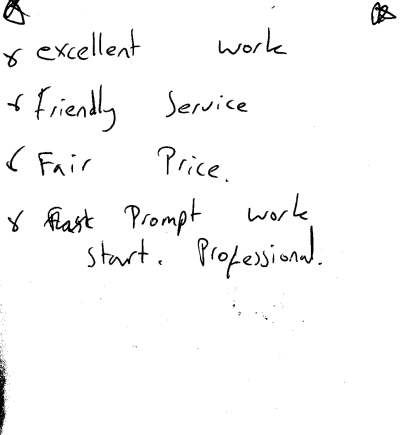 excellent work
friendly Service
Fair Price.
Prompt work
start. Professional.